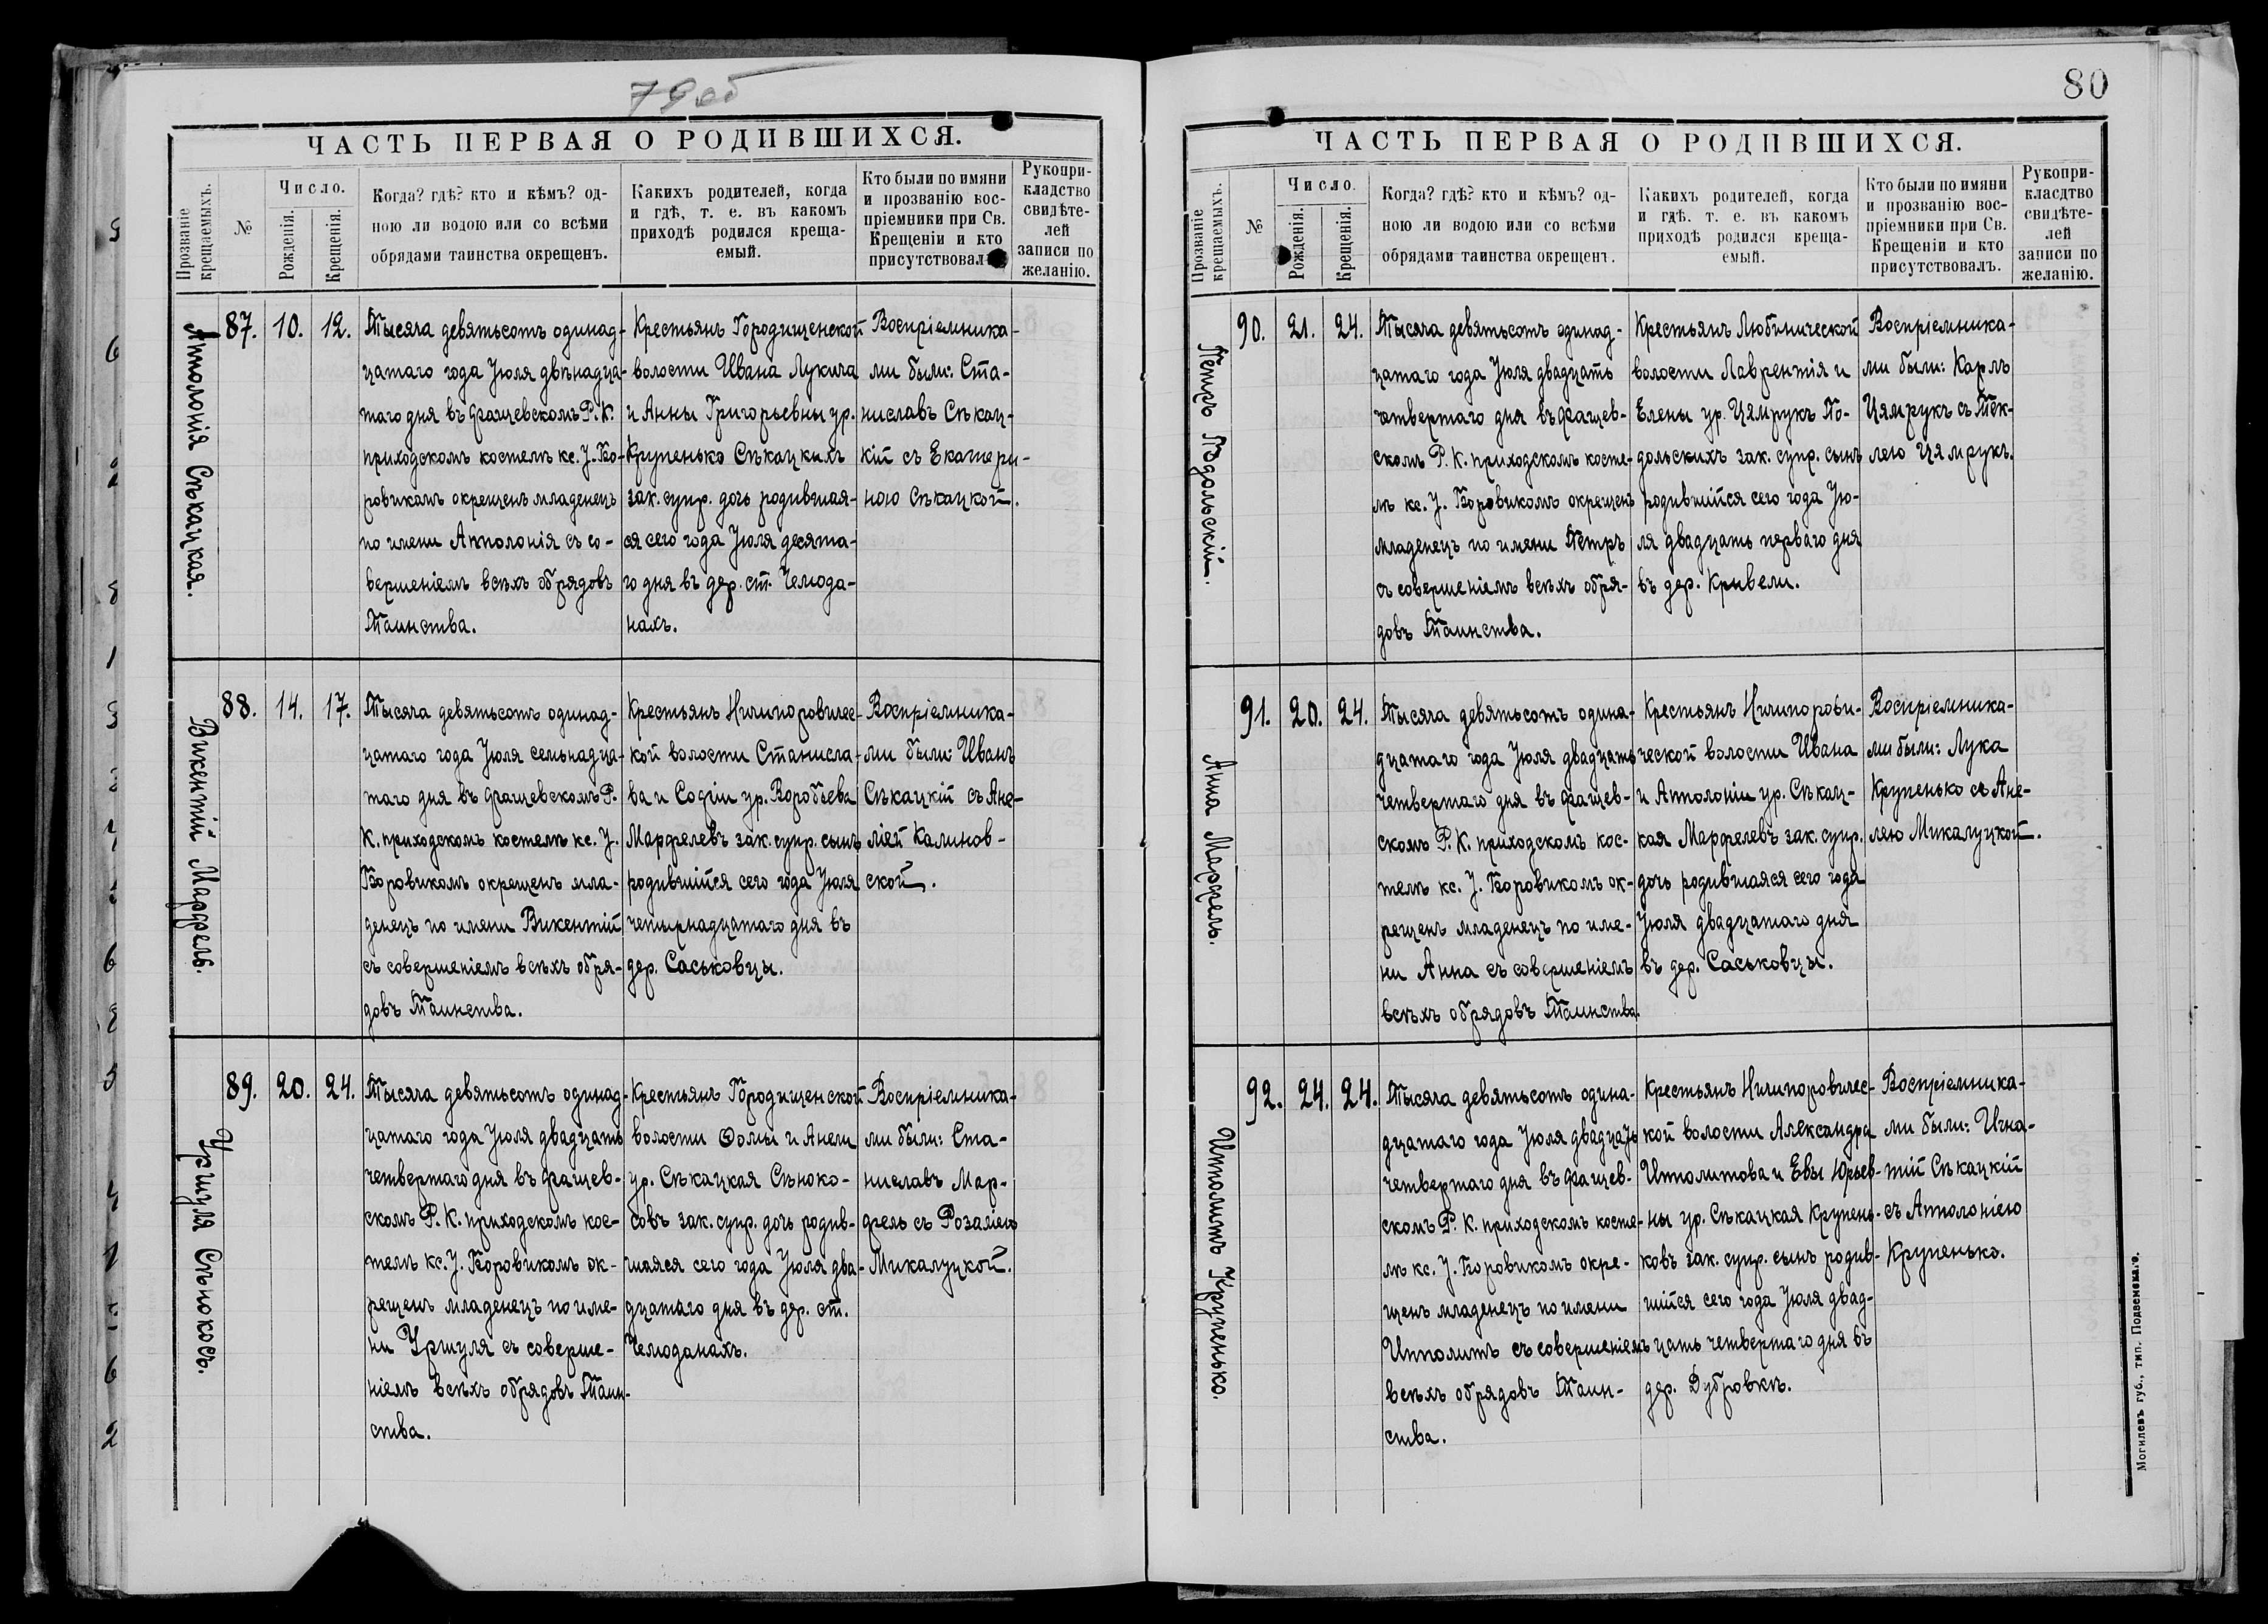 79 об
ЧАСТЬ ПЕРВАЯ О РОДИВШИХСЯ.
Прозваніе крещаемыхъ.
№
Число.
Рожденія.
Крещенія.
Когда? гдѣ? кто и кѣмъ? од-
ною ли водою или со всѣми
обрядами таинства окрещенъ.
Какихъ родителей, когда
и гдѣ, т. е. въ какомъ
приходѣ родился креща-
емый.
Кто были по имяни
и прозванію вос-
пріемники при Св.
Крещеніи и кто
присутствовал
Рукопри-
кладство
свидѣте-
лей
записи по
желанію.
Апполонія Сѣкацкая.
87. 10. 12.
Тысяча девятьсотъ одинад-
цатаго года Юля двѣнадца-
таго дня въ Фащевскомъ Р. К.
приходскомъ костелѣ кс. У. Бо-
ровикомъ окрещенъ младенецъ
по имени Апполонія съ со-
вершеніемъ всѣхъ обрядовъ
Таинства.
Крестьянъ Городищенской
волости Ивана Лукича
и Анны Григорьевны ур.
Крупенько Сѣкацкихъ
зак. супр. дочь родившая-
ся сего года Юля десята-
го дня въ дер. ст. Чемода-
нахъ.
Воспріемника-
ми были: Ста-
ниславъ Сѣкац-
кій съ Екатери-
ною Сѣкацкой.
Викентій Марфель.
88. 14. 17.
Тысяча девятьсотъ одинад-
цатаго года Юля семьнадца-
таго дня въ Фащевскомъ Р.
К. приходскомъ костелѣ кс. У.
Боровикомъ окрещенъ мла-
денецъ по имени Викентій
съ совершеніемъ всѣхъ обря-
довъ Таинства.
Крестьянъ Ничипоровичес-
кой волости Станисла-
ва и Софіи ур. Воробьева
Марфелевъ зак. супр. сынъ
родившійся сего года Юля
четырнадцатаго дня въ
дер. Саськовцы.
Воспріемника-
ми были: Иванъ
Сѣкацкій съ Ане-
ліей Калинов-
ской.
Уршуля Сѣнокосъ.
89. 20. 24.
Тысяча девятьсотъ одинад-
цатаго года Юля двадцать
четвертаго дня въ Фащев-
скомъ Р. К. приходскомъ кос-
телѣ кс. У. Боровикомъ ок-
рещенъ младенецъ по име-
ни Уршуля съ соверше-
ніемъ всѣхъ обрядовъ Таин-
ства.
Крестьянъ Городищенской
волости Ѳомы и Анели
ур. Сѣкацкая Сѣноко-
совъ зак. супр. дочь родив-
шаяся сего года Юля два-
дцатаго дня въ дер. ст.
Чемоданахъ.
Воспріемника-
ми были: Ста-
ниславъ Мар-
фель съ Розаліею
Микалуцкой.
80
ЧАСТЬ ПЕРВАЯ О РОДИВШИХСЯ.
Прозваніе крещаемыхъ.
№
Число.
Рожденія.
Крещенія.
Когда? гдѣ? кто и кѣмъ? од-
ною ли водою или со всѣми
обрядами таинства окрещенъ.
Какихъ родителей, когда
и гдѣ. т. е. въ какомъ
приходѣ родился креща-
емый.
Кто были по имяни
и прозванію вос-
пріемники при Св.
Крещеніи и кто
присутствовалъ.
Рукопри-
класдтво
свидѣте-
лей
записи по
желанію.
Петръ Подольскій.
90. 21. 24.
Тысяча девятьсотъ одинад-
цатаго года Юля двадцать
четвертаго дня въ Фащев-
скомъ Р. К. приходскомъ косте-
лѣ кс. У. Боровикомъ окрещенъ
младенецъ по имени Петръ
съ совершеніемъ всѣхъ обря-
довъ Таинства.
Крестьянъ Любинической
волости Лаврентія и
Елены ур. Цямрукъ По-
дольскихъ зак. супр. сынъ
родившійся сего года Ю-
ля двадцать перваго дня
въ дер. Кривели.
Воспріемника-
ми были: Карлъ
Цямрукъ съ Тек-
лею Цямрукъ.
Анна Марфель.
91. 20. 24.
Тысяча девятьсотъ одина-
дцатаго года Юля двадцать
четвертаго дня въ Фащев-
скомъ Р. К. приходскомъ кос-
телѣ кс. У. Боровикомъ ок-
рещенъ младенецъ по име-
ни Анна съ совершеніемъ
всѣхъ обрядовъ Таинства.
Крестьянъ Ничипорови-
ческой волости Ивана
и Апполоніи ур. Сѣкац-
кая Марфелевъ зак. супр.
дочь родившаяся сего года
Юля двадцатаго дня
въ дер. Саськовцы.
Воспріемника-
ми были: Лука
Крупенько съ Ане-
лею Микалуцкой.
Ипполитъ Крупенько.
92. 24. 24.
Тысяча девятьсотъ одина-
дцатаго года Юля двадцать
четвертаго дня въ Фащев-
скомъ Р. К. приходскомъ косте-
лѣ кс. У. Боровикомъ окре-
щенъ младенецъ по имени
Ипполитъ съ совершеніемъ
всѣхъ обрядовъ Таин-
ства.
Крестьянъ Ничипоровичес-
кой волости Александра
Ипполитова и Евы Юрьев-
ны ур. Сѣкацкая Крупень-
ковъ зак. супр. сынъ родив-
шійся сего года Юля двад-
цать четвертаго дня въ
дер. Дубровкѣ.
Воспріемника-
ми были: Игна-
тій Сѣкацкій
съ Апполоніею
Крупенько.
Могилевъ губ., тип. Подземскаго.